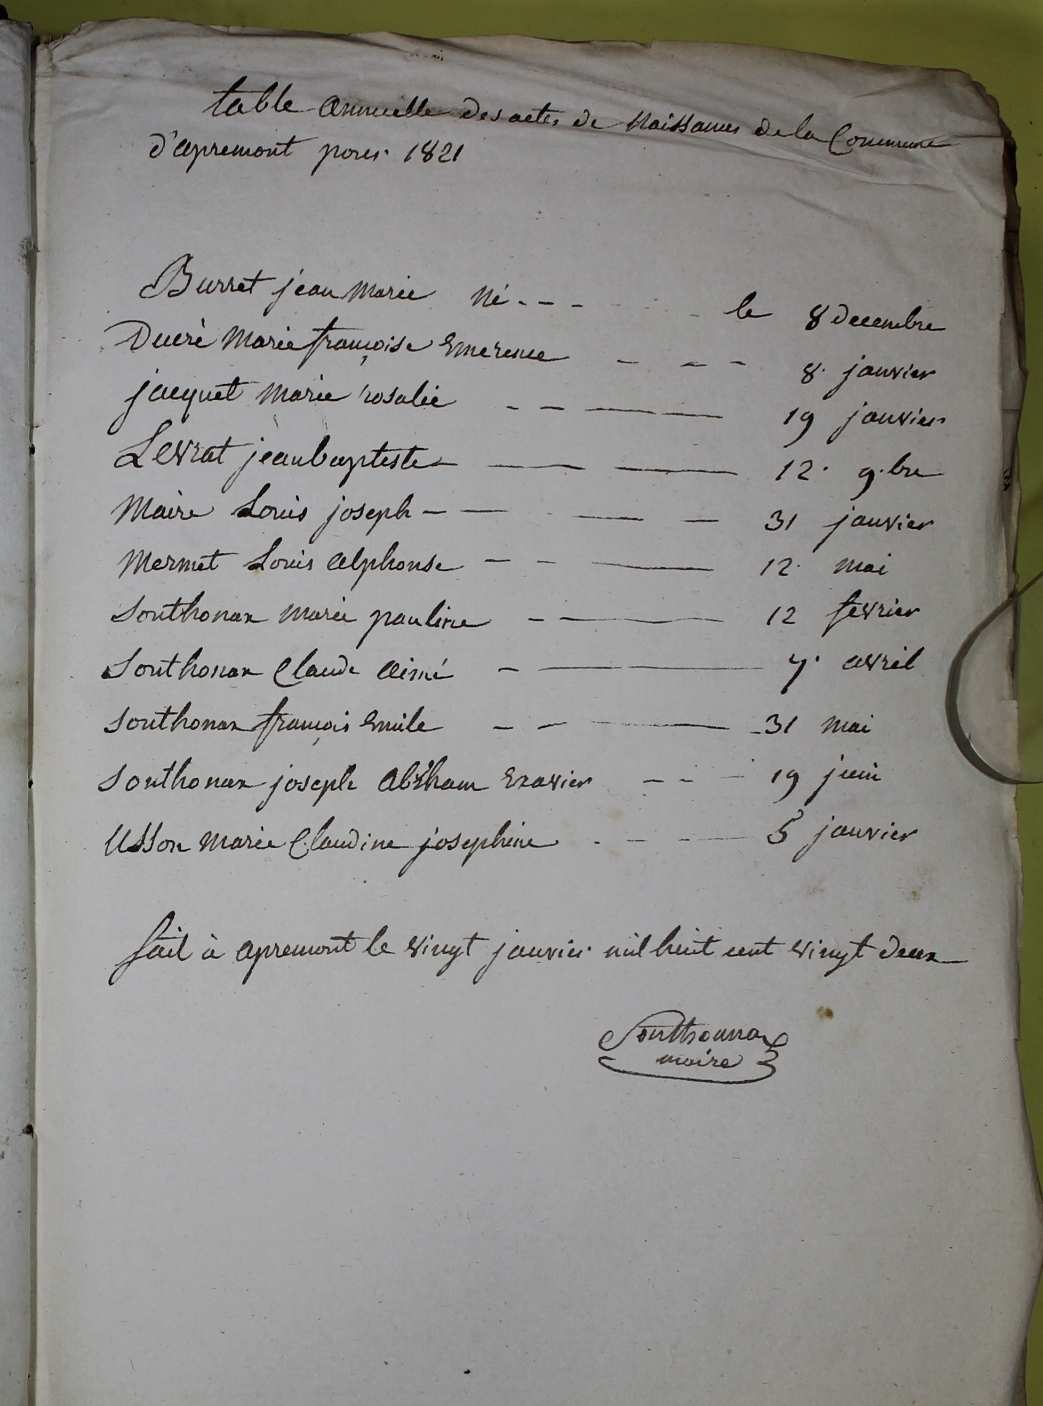 table annuelle des actes de Naissances de la Commune
d'apremont pour 1821
Burret jean Marie Né - - - le 8 decembre
Ducré Marie françoise Emerence - - - 8. janvier
jacquet Marie rosalie - - — 19 janvier
Levrat jean baptiste — — — 12. 9.bre
Maire Louis joseph - — — - 31 janvier
Mermet Louis alphonse - - — 12. mai
Sonthonax Marie pauline - - — 12 fevrier
Sonthonax Claude aimé - — 7. avril
Sonthonax françois Emile - - — 31 mai
Sonthonax joseph abraham Exavier - - - 19 juin
Usson Marie Claudine josephine - - — 5 janvier
fait à apremont le vingt janvier mil huit cent vingt deux
Sonthonnax
maire